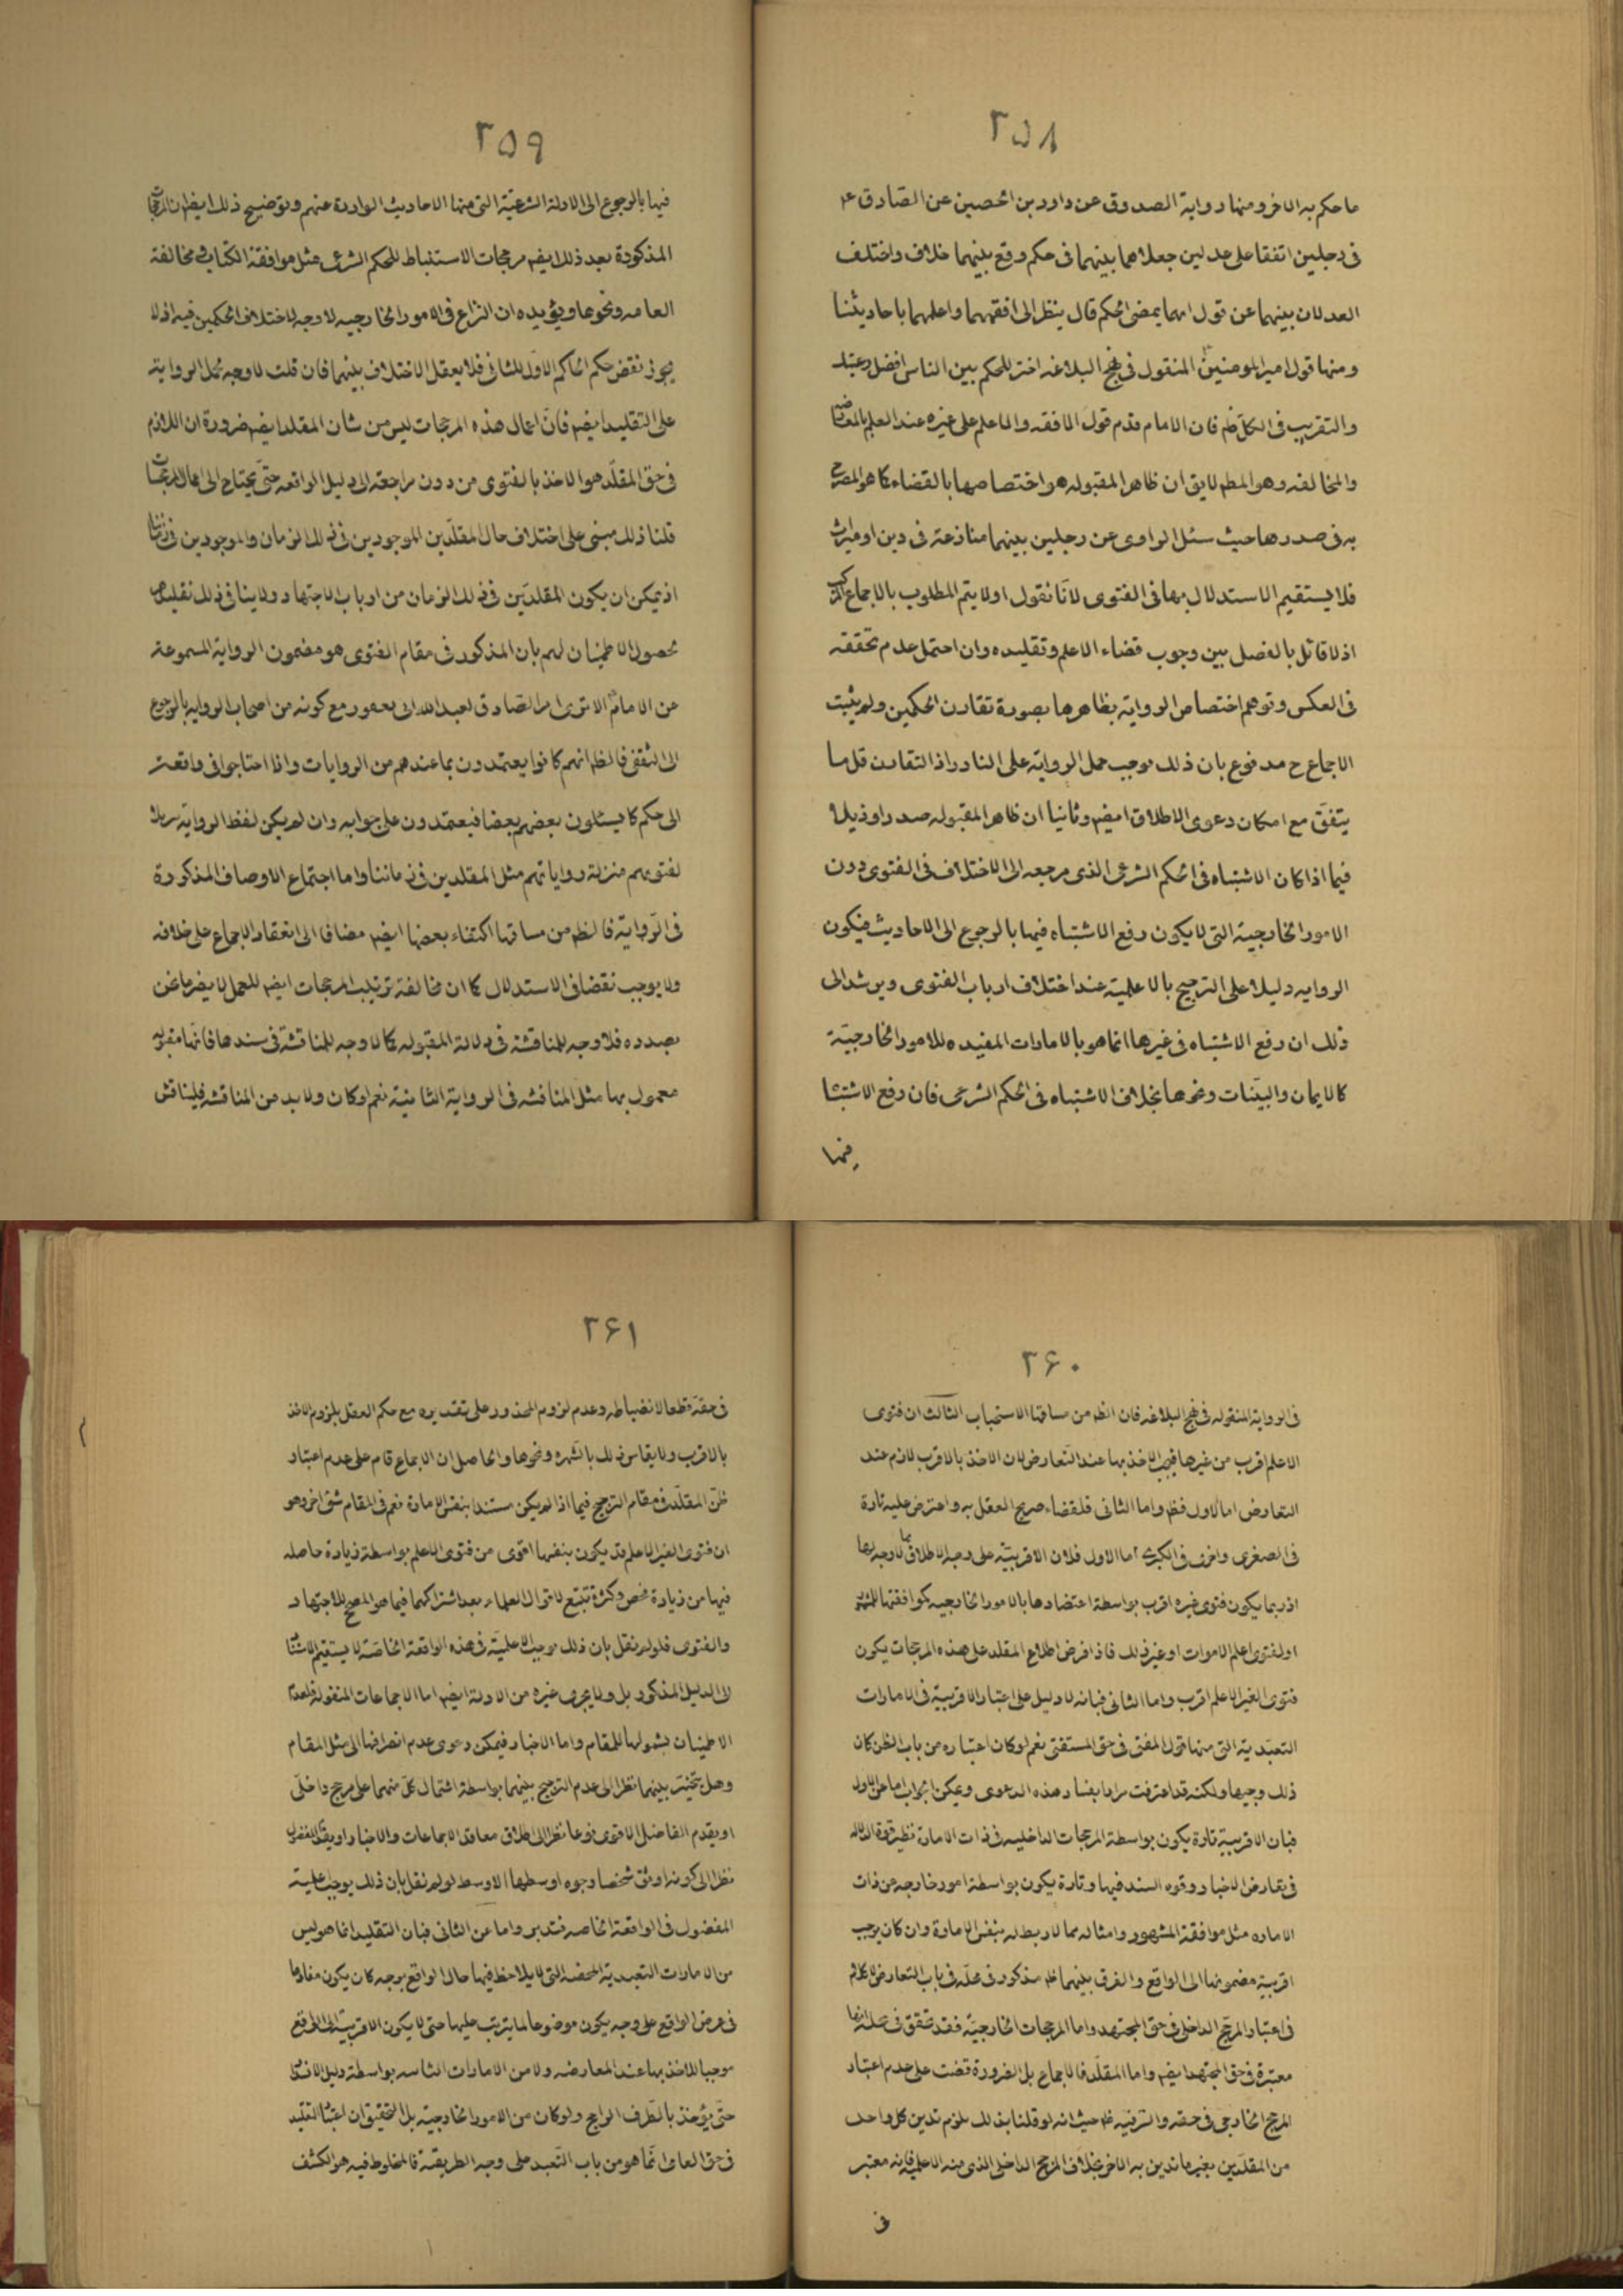 ٢٥٨
ما حكم به الاخر ومنها رواية الصدوق عن داود بن الحصين عن الصادق ع
فى رجلين اتفقا على عدلين جعلاهما بينهما فى حكم وقع بينهما خلاف واختلف
العدلان بينهما عن قول ايهما يمضى الحكم قال ينظر الى افقههما واعلمهما باحاديثنا
ومنها قول امير المومنين المنقول فى نهج البلاغه اختر للحكم بين الناس افضل رعيتك
والتقريب فى الكل ظم فان الامام قدم قول الافقه والاعلم على غيره عند العلم بالمعارضه
والمخالفه وهو المطم لايق ان ظاهر المقبوله هو اختصاصها بالقضاء كما هو المصرح
به فى صدرها حيث سئل الراوى عن رجلين بينهما منازعة فى دين او ميراث
فلا يستقيم الاستدلال بها فى الفتوى لانا نقول اولا يتم المطلوب بالاجماع المركب
اذ لا قائل بالفصل بين وجوب قضاء الاعلم وتقليده وان احتمل عدم تحققه
فى العكس وتوهم اختصاص الرواية بظاهرها بصورة تقارن الحكمين ولم يثبت
الاجماع ح مدفوع بان ذلك موجب حمل الرواية على النادر اذ التقارن قل ما
يتفق مع امكان دعوى الاطلاق ايضم وثانيا ان ظاهر المقبوله صدرا وذيلا
فيما اذا كان الاشتباه فى الحكم الشرعى الذى مرجعه الى الاختلاف فى الفتوى دون
الامور الخارجية التى لا يكون رفع الاشتباه فيها بالرجوع الى الاحاديث فيكون
الروايه دليلا على الترجيح بالاعلمية عند اختلاف ارباب الفتوى ويرشد الى
ذلك ان رفع الاشتباه فى غيرها انما هو بالامارات المفيده للامور الخارجيّة
كالايمان والبيّنات ونحوها بخلاف الاشتباه فى الحكم الشرعى فان رفع الاشتباه
فيها
٢٥٩
فيها بالرجوع الى الادلة الشرعيّة التى منها الاحاديث الواردة عنهم وتوضيح ذلك ايضم ان المرجحات
المذكورة بعد ذلك ايضم مرجحات الاستنباط للحكم الشرعى مثل موافقة الكتاب ومخالفة
العامه ونحوها ويؤيده ان النزاع فى الامور الخارجيه لا وجه لاختلاف الحكمين فيه اذ لا
يجوز نقض حكم الحاكم الاول للثانى فلا يعقل الاختلاف بينهما فان قلت لا وجه لحمل الرواية
على التقليد ايضم فان اعمال هذه المرجحات ليس من شان المقلد ايضم ضرورة ان اللازم
فى حق المقلّد هو الاخذ بالفتوى من دون مراجعة الى دليل الواقعه حتى يحتاج الى اعمال المرجحات
قلنا ذلك مبنى على اختلاف حال المقلّدين الموجودين فى ذلك الزمان والموجودين فى زماننا
اذ يمكن ان يكون المقلّدين فى ذلك الزمان من ارباب الاجتهاد ولا ينافى ذلك تقليدهم
لحصول الاطمينان لهم بان المذكور فى مقام الفتوى هو مضمون الرواية المسموعة
من الامام الا ترى امر الصادق لعبد الله ابى يعفور مع كونه من اصحاب الروايه بالرجوع
الى الثقفى فالظم انهم كانوا يعتمدون بما عندهم من الروايات واذا احتاجوا فى واقعة
الى حكم كما يسئلون بعضهم بعضا فيعتمدون على جوابه وان لم يكن لفظ الرواية
لفتويهم منزلة رواياتهم مثل المقلدين فى زماننا واما اجتماع الاوصاف المذكورة
فى الرّواية فالظم من مساقها اكتفاء بعضها ايضم مضافا الى انعقاد الاجماع على خلافه
ولا يوجب نقضا فى الاستدلال كما ان مخالفة ترتيب المرجحات ايضم للعمل لا يضر ما نحن
بصدده فلا وجه للمناقشة فى دلالة المقبوله كما لا وجه للمناقشة فى سندها فانها مقبولة
معمول بها مثل المناقشه فى الرواية الثانية نعم لو كان ولا بد من المناقشه فليناقش
٢۶٠
فى الرواية المنقوله فى نهج البلاغه فان الظم من مساقها الاستحباب الثالث ان فتوى
الاعلم اقرب من غيرها فيجب الاخذ بها عند التعارض لان الاخذ بالاقرب لازم عند
التعارض اما الاول فظم واما الثانى فلقضاء صريح العقل به واعترض عليه تارة
فى الصغرى واخرى فى الكبرى اما الاول فلان الاقربيّة على وجه الاطلاق مما لا وجه لها
اذ ربما يكون فتوى غيره اقرب بواسطة اعتضادها بالامور الخارجيه كموافقتها للمشهور
او لفتوى اعلم الاموات او غير ذلك فاذا فرض اطلاع المقلد على هذه المرجحات يكون
فتوى الغير الاعلم اقرب واما الثانى فبانه لا دليل على اعتبار الاقربية فى الامارات
التعبّدية التى منها قول المفتى فى حق المستفتى نعم لو كان اعتباره من باب الظن كان
ذلك وجيها ولكنه قد اعترفت مرارا بفساد هذه الدعوى ويمكن الجواب اما عن الاول
فبان الاقربية تارة يكون بواسطة المرجحات الداخليه فى ذات الامارة نظير قوة الدلالة
فى تعارض الاخبار وقوه السند فيها وتارة يكون بواسطة امور خارجه عن ذات
الاماره مثل موافقة المشهور وامثاله مما لا ربط له بنفس الامارة وان كان يوجب
اقربية مضمونها الى الواقع والفرق بينهما ظم مذكور فى محله فى باب التعارض لا كلام
فى اعتبار المرجح الداخلى فى حق المجتهد واما المرجحات الخارجيّة فقد تحقق فى محله انها
معتبرة فى حق المجتهد ايضم واما المقلّد فالاجماع بل الضرورة قضت على عدم اعتبار
المرجح الخارجى فى حقه والسر فيه ظم حيث انه لو قلنا بذلك يلزم تدين كل واحد
من المقلّدين بغير ما تدين به الاخر بخلاف المرجح الداخلى الذى منه الاعلمية فانه معتبر
فى
٢۶١
فى حقه قطعا لانضباطه وعدم لزوم المحذور على تقديره مع حكم العقل بلزوم الاخذ
بالاقرب ولا يقاس ذلك بالشهره ونحوها والحاصل ان الاجماع قام على عدم اعتبار
ظنّ المقلّد فى مقام الترجيح فيما اذا لم يكن مستندا بنفس الامارة نعم فى المقام شق اخر وهو
ان فتوى الغير الاعلم قد يكون بنفسها اقوى من فتوى الاعلم بواسطة زيادة حاصله
فيها من زيادة فحص وكثرة تتبّع لاقوال العلماء بعد اشتراكهما فيما هو المصحح للاجتهاد
والفتوى فلو لم نقل بان ذلك يوجب الاعلميّة فى هذه الواقعة الخاصّة لا يستقيم الاستناد
الى الدليل المذكور بل ولا يجرى غيره من الادلة ايضم اما الاجماعات المنقولة فلعدم
الاطمينان بشمولها للمقام واما الاخبار فيمكن دعوى عدم انصرافها الى مثل المقام
وهل يتخيّر بينهما نظرا الى عدم الترجيح بينهما بواسطة اشتمال كلّ منهما على مرجح داخلى
او يقدم الفاضل الاقوى نوعا نظرا الى اطلاق معاقد الاجماعات والاخبار او يقدم المفضول
نظرا الى كونه اوثق شخصا وجوه اوسطها الاوسط لو لم نقل بان ذلك يوجب اعلمية
المفضول فى الواقعة الخاصه فتدبر واما عن الثانى فبان التقليد انما هو ليس
من الامارات التعبدية المحضه التى لا يلاحظ فيها حال الواقع بوجه كان يكون مفادها
فى عرض الواقع على وجه يكون موضوعا لما يترتب عليها حتى لا يكون الاقربية الى الواقع
موجبا للاخذ بها عند المعارضه ولا من الامارات الثابته بواسطة دليل الانسداد
حتّى يؤخذ بالطرف الراجح ولو كان من الامور الخارجيّة بل التحقيق ان اعتبار التقليد
فى حق العامى انّما هو من باب التّعبد على وجه الطريقة فالملحوظ فيه هو الكشف